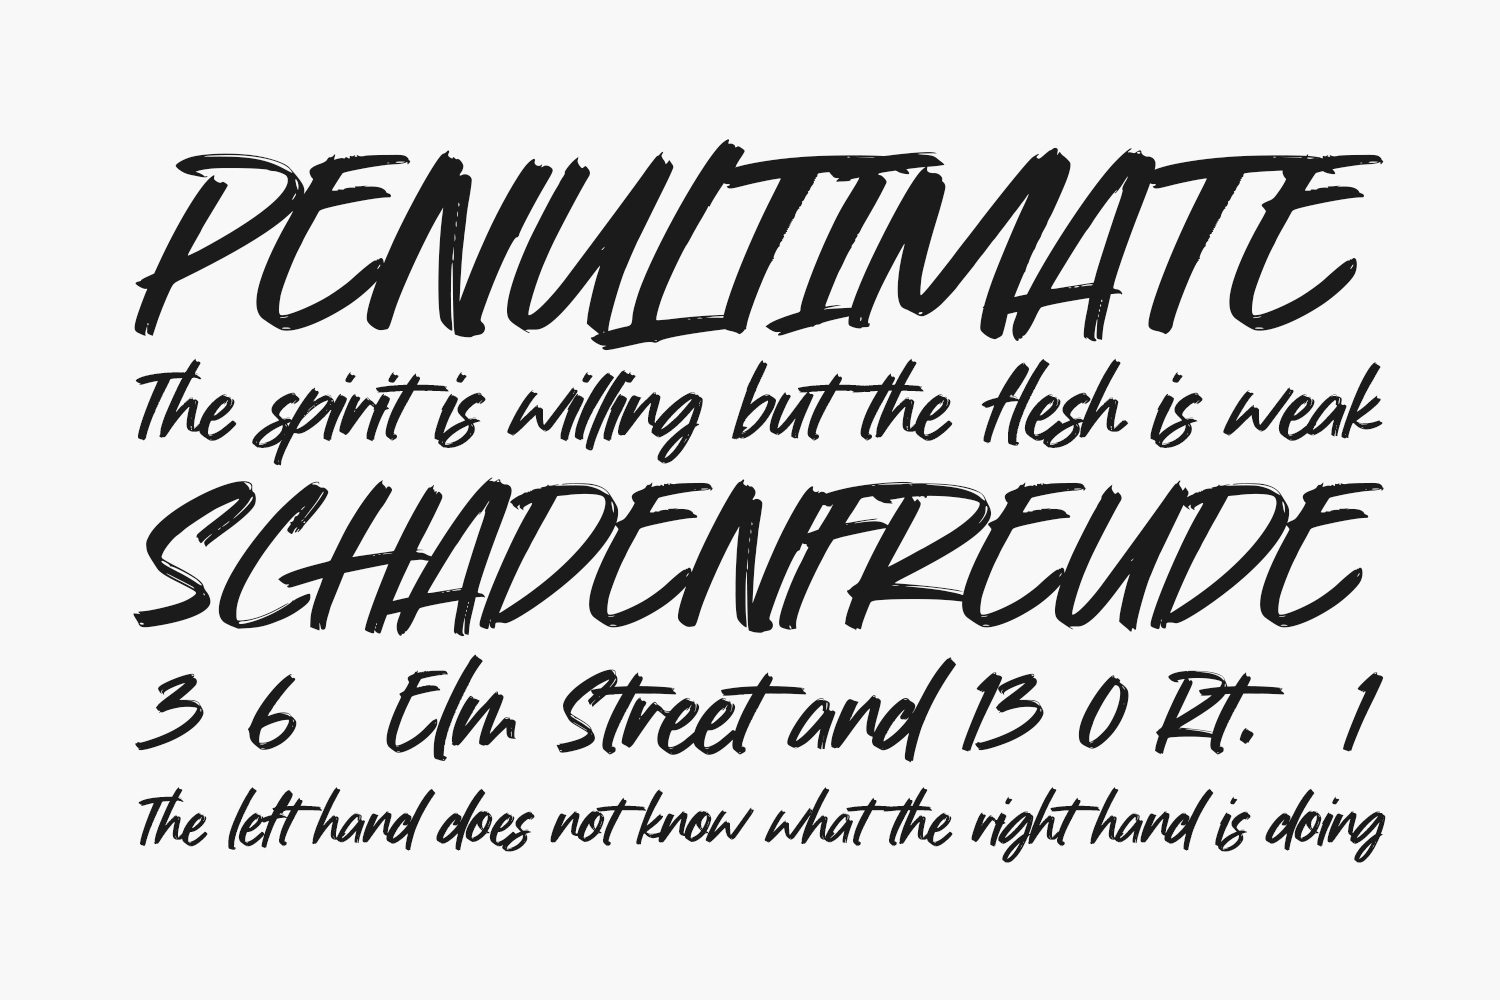 PENULTIMATE
The spirit is willing but the flesh is weak
SCHADENFREUDE
3 6 Elm Street and 13 0 Rt. 1
The left hand does not know what the right hand is doing